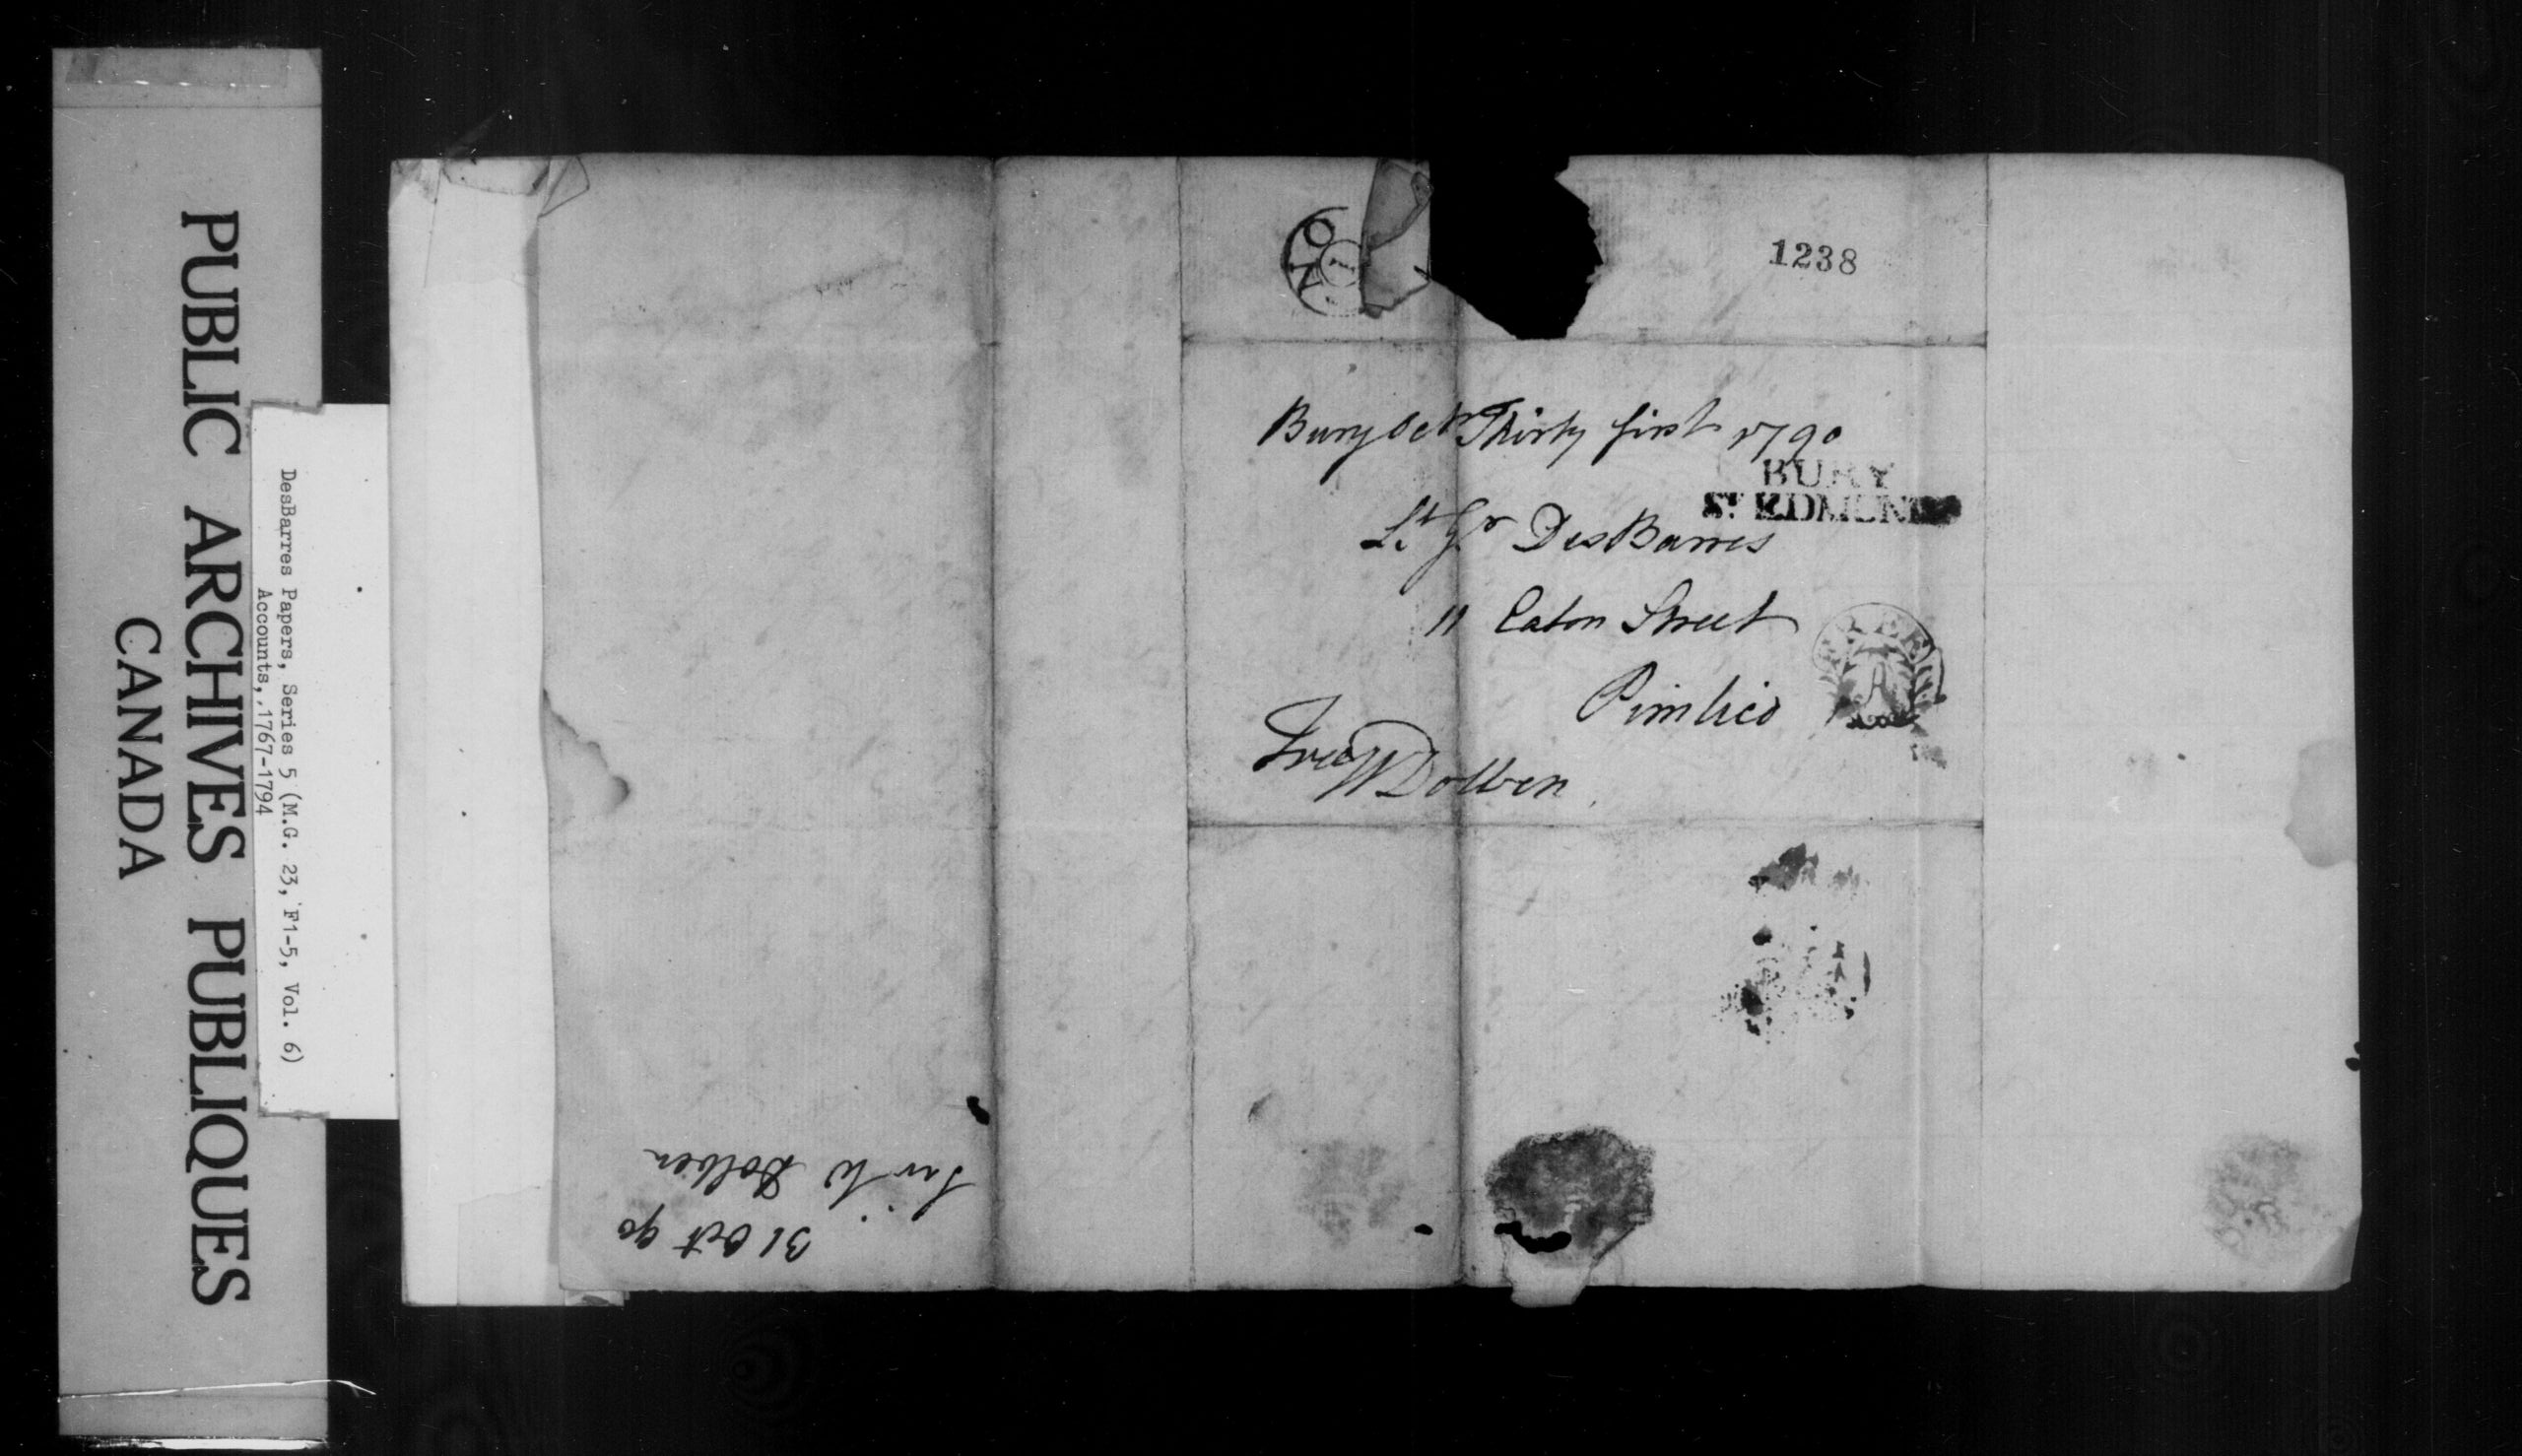 PUBLIC ARCHIVES PUBLIQUES
CANADA
DesBarres Papers, Series 5 (M.G. 23, F1-5, Vol. 6)
Accounts, 1767-1794
NO
1
1238
Bury Octr Thirty first 1790
BURY
ST EDMUNDS
Lt Gr DesBarres
11 Eaton Street
Pimlico
FREE
A
Free W Dolben
31 Oct 90
Sir W Dolben